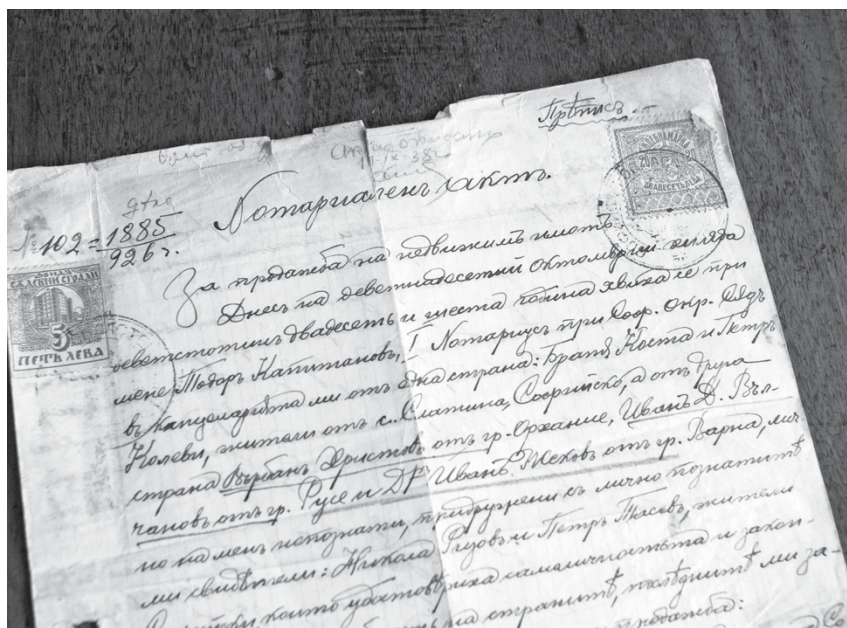 Прѣписъ
Нотариаленъ актъ.
дѣло
№ 102 = 1885
926 г.
За продажба на недвижимъ имотъ
Днесъ на деветнадесетий Октомврий хиляда
деветстотинъ двадесеть и шеста година явиха се при
мене Тодоръ Капитановъ, I Нотариусъ при Соф. Окр. Сѫдъ
въ канцеларията ми отъ една страна: Братя Коста и Петръ
Колеви, жители отъ с. Слатина, Софийско, а отъ друга
страна Върбанъ Христовъ отъ гр. Орхание, Иванъ Д. Въл-
чановъ отъ гр. Русе и Др. Иванъ Меховъ отъ гр. Варна, лич-
но на менъ непознати, придружени съ лично познатитѣ
ми свидѣтели: Никола Ризовъ и Петръ Тасевъ, жители
Софийски които удостовѣриха самоличностьта и закон-
на странитѣ, послѣднитѣ ми за-
продажба:
СѪДСКИ СГРАДИ
5
ПЕТЬ ЛЕВА
20 ЛЕВА
ДВАДЕСЕТЬ ЛЕВА